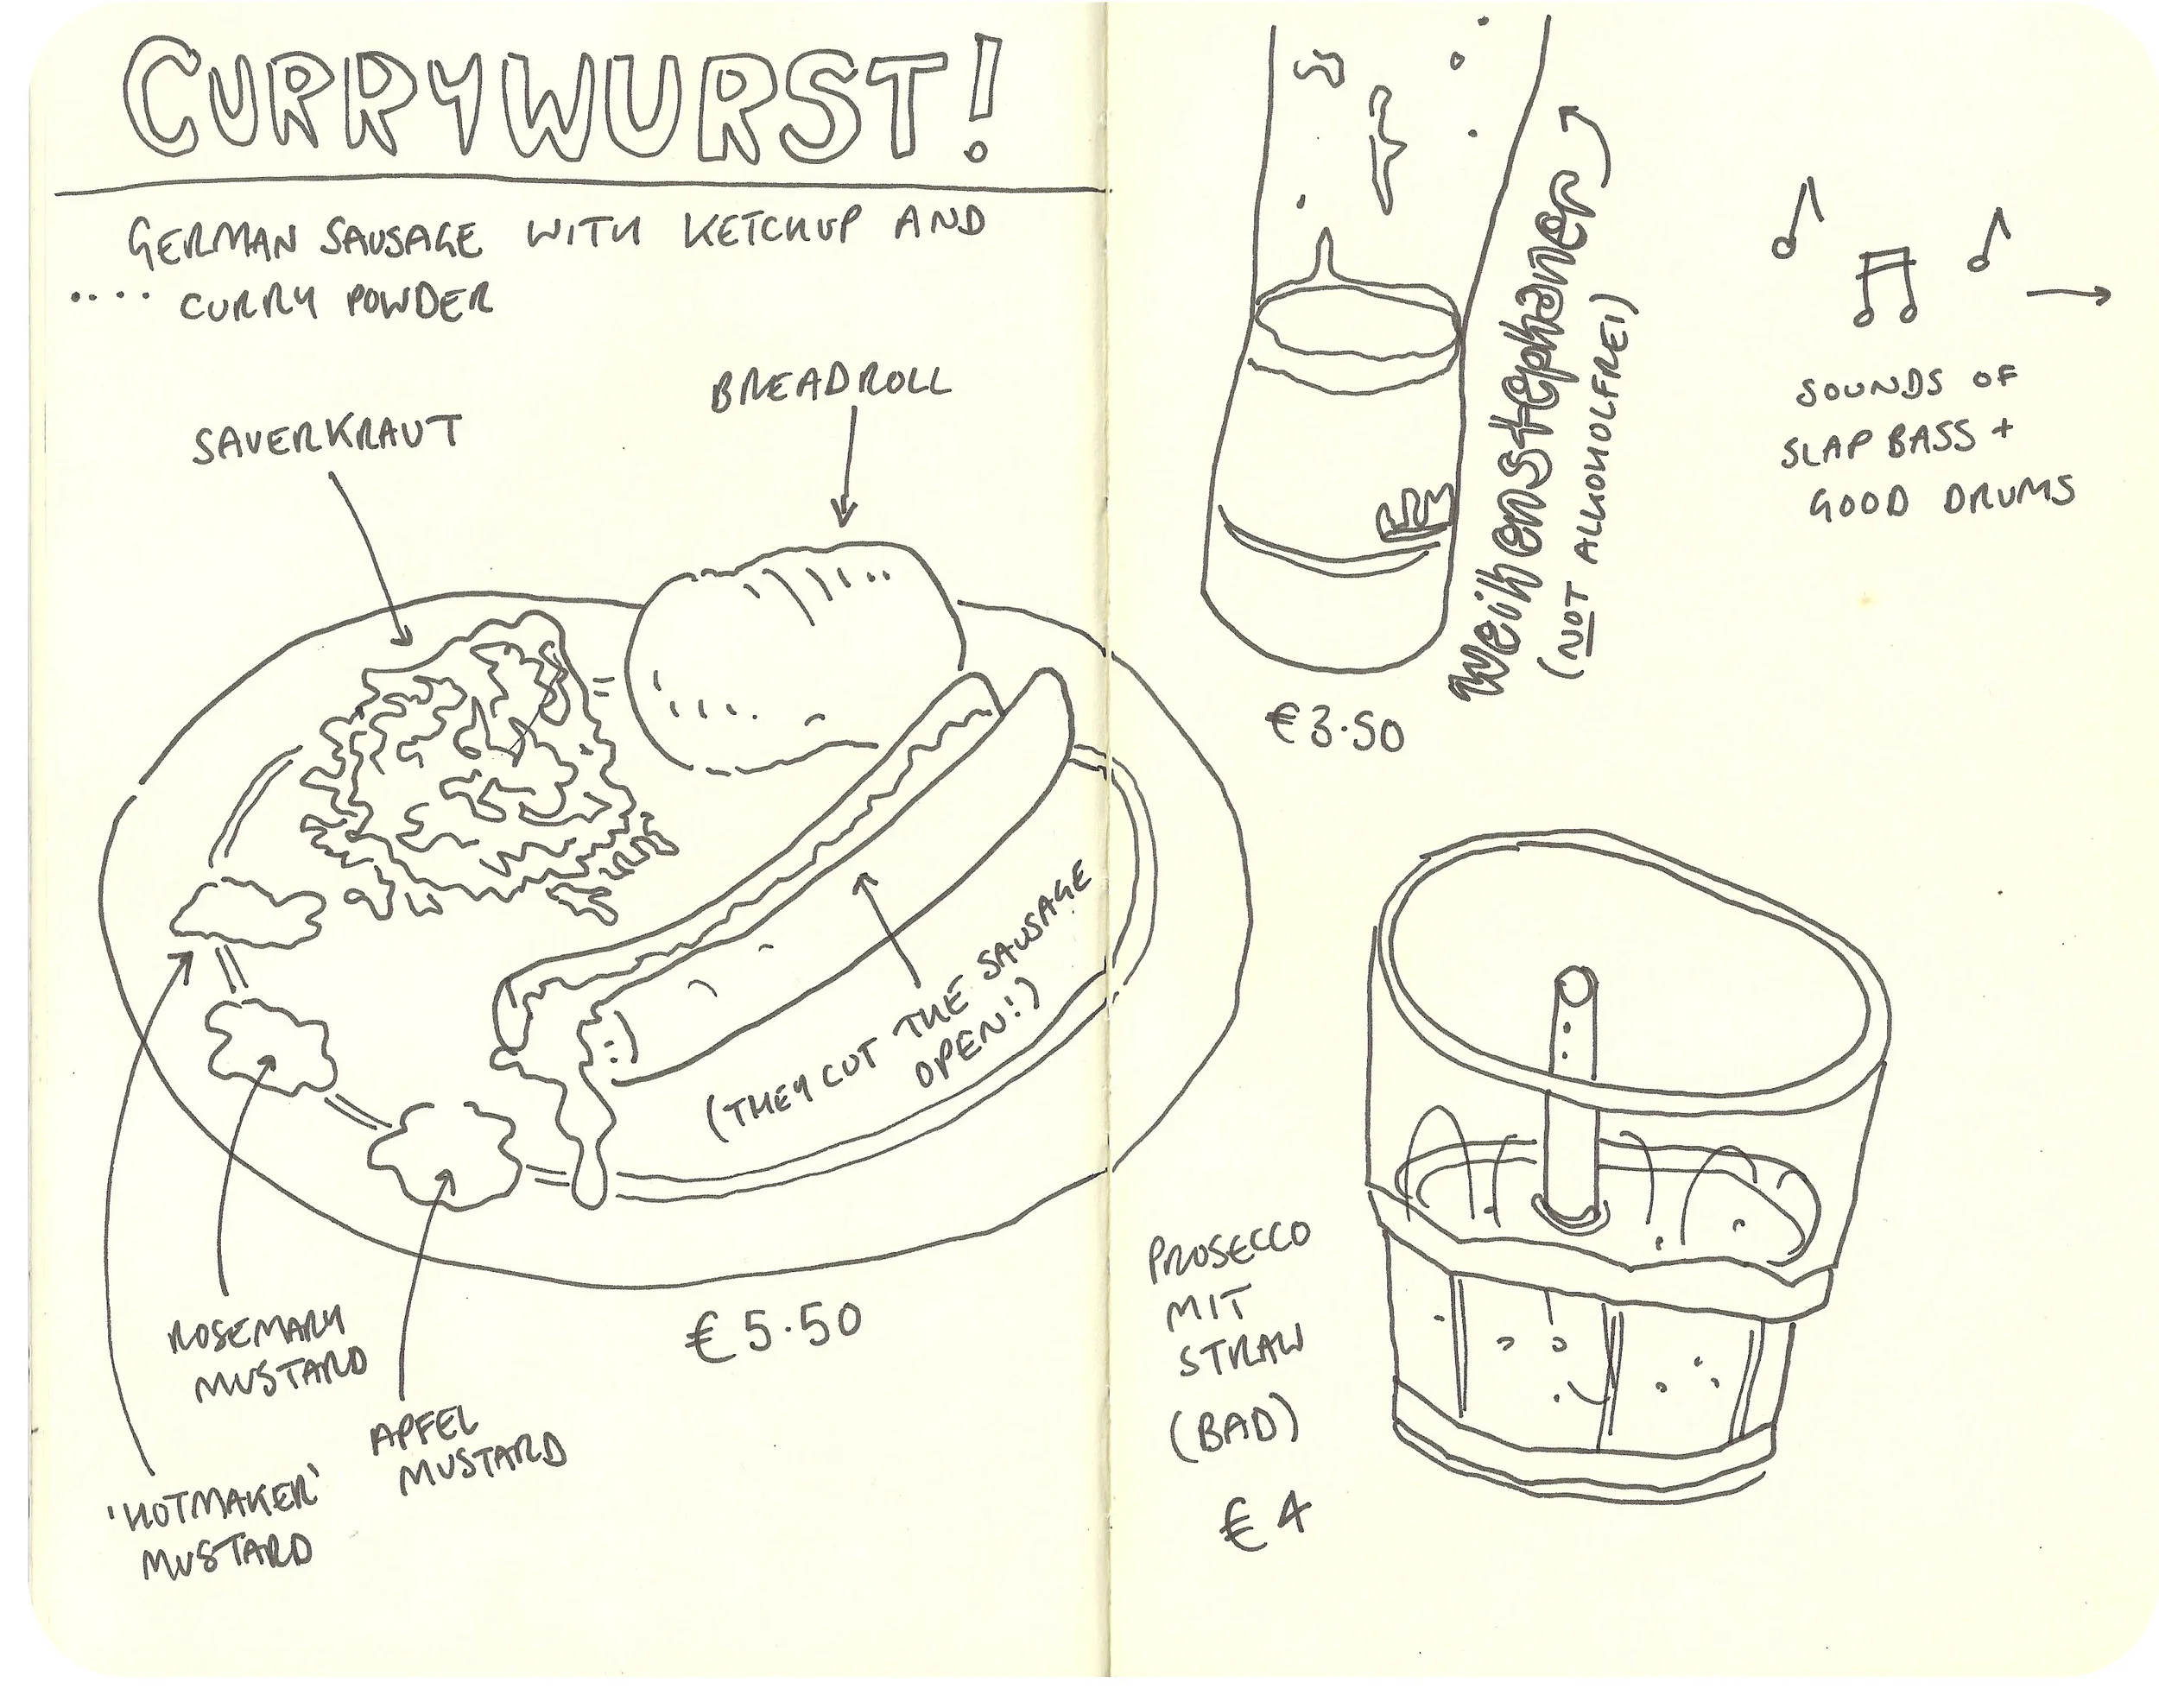 CURRYWURST!
GERMAN SAUSAGE WITH KETCHUP AND
.... CURRY POWDER
SAUERKRAUT
BREADROLL
(THEY CUT THE SAUSAGE
OPEN!)
ROSEMARY
MUSTARD
APFEL
MUSTARD
'HOTMAKER'
MUSTARD
€5.50
Weihenstephaner
(NOT ALKOHOLFREI)
€3.50
SOUNDS OF
SLAP BASS +
GOOD DRUMS
PROSECCO
MIT
STRAW
(BAD)
€4